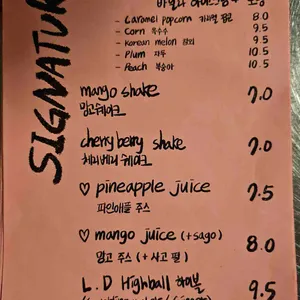 SIGNATUR
- Caramel popcorn 카라멜 팝콘 8.0
- Corn 옥수수 9.5
- Korean melon 참외 9.5
- Plum 자두 10.5
- Peach 복숭아 10.5
mango shake 7.0
망고쉐이크
cherry berry shake 7.0
체리베리 쉐이크
♡ pineapple juice 7.5
파인애플 주스
♡ mango juice (+sago) 8.0
망고 주스 (+ 사고 펄)
L.D Highball 하이볼 9.5